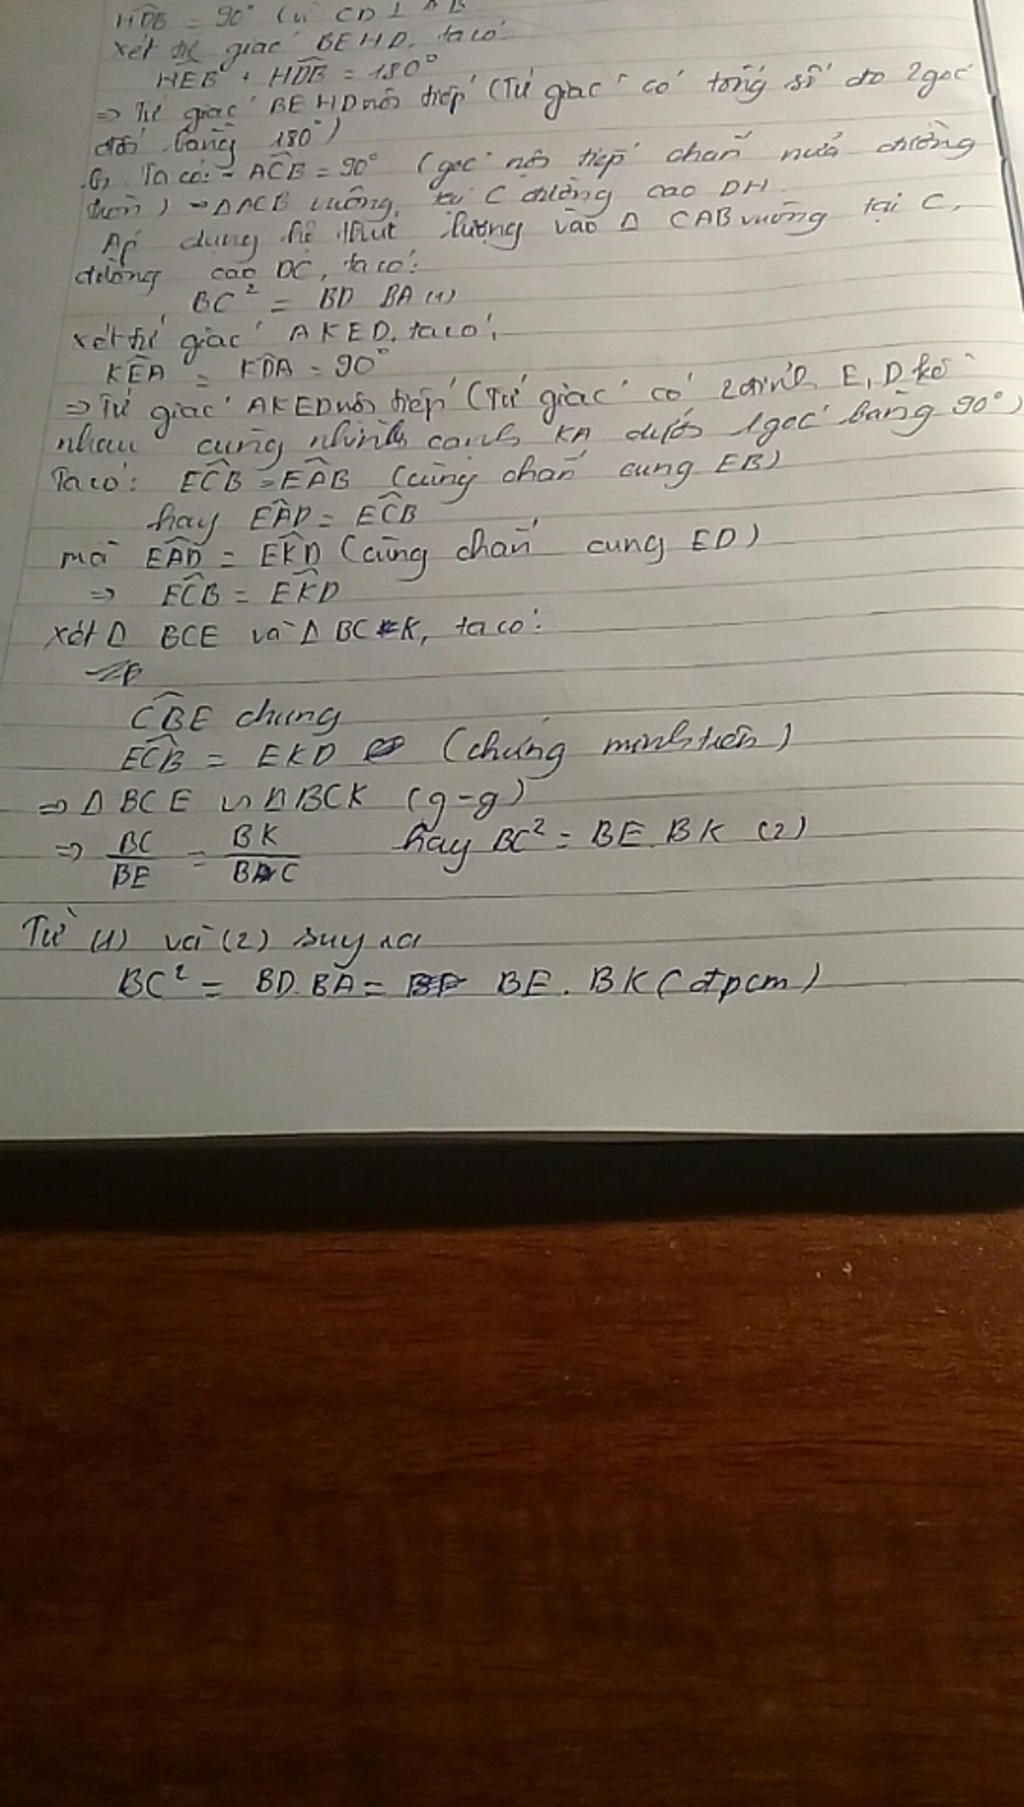 HDB = 90° (vì CD ⊥ AB
xét tứ giác BEHD, ta có:
HEB + HDB = 180°
=> Tứ giác BEHD nội tiếp (Tứ giác có tổng số đo 2 góc
đối bằng 180°)
b, Ta có: - ACB = 90° (góc nội tiếp chắn nửa đường
tròn) => ΔACB vuông tại C đường cao DH
Áp dụng hệ thức lượng vào Δ CAB vuông tại C,
đường cao DC, ta có:
BC² = BD BA (1)
xét tứ giác AKED, ta có:
KEA = KDA = 90°
=> Tứ giác AKED nội tiếp (Tứ giác có 2 đỉnh E, D kề
nhau cùng nhình cạnh KA dưới 1 góc bằng 90°)
Ta có: ECB = EAB (cùng chắn cung EB)
hay EAD = ECB
mà EAD = EKD (cùng chắn cung ED)
=> ECB = EKD
xét Δ BCE và Δ BCK, ta có:
CBE chung
ECB = EKD (chứng minh trên)
=> Δ BCE ∽ Δ BCK (g-g)
=> BC/BE = BK/BC hay BC² = BE. BK (2)
Từ (1) và (2) suy ra
BC² = BD. BA = BE. BK (đpcm)